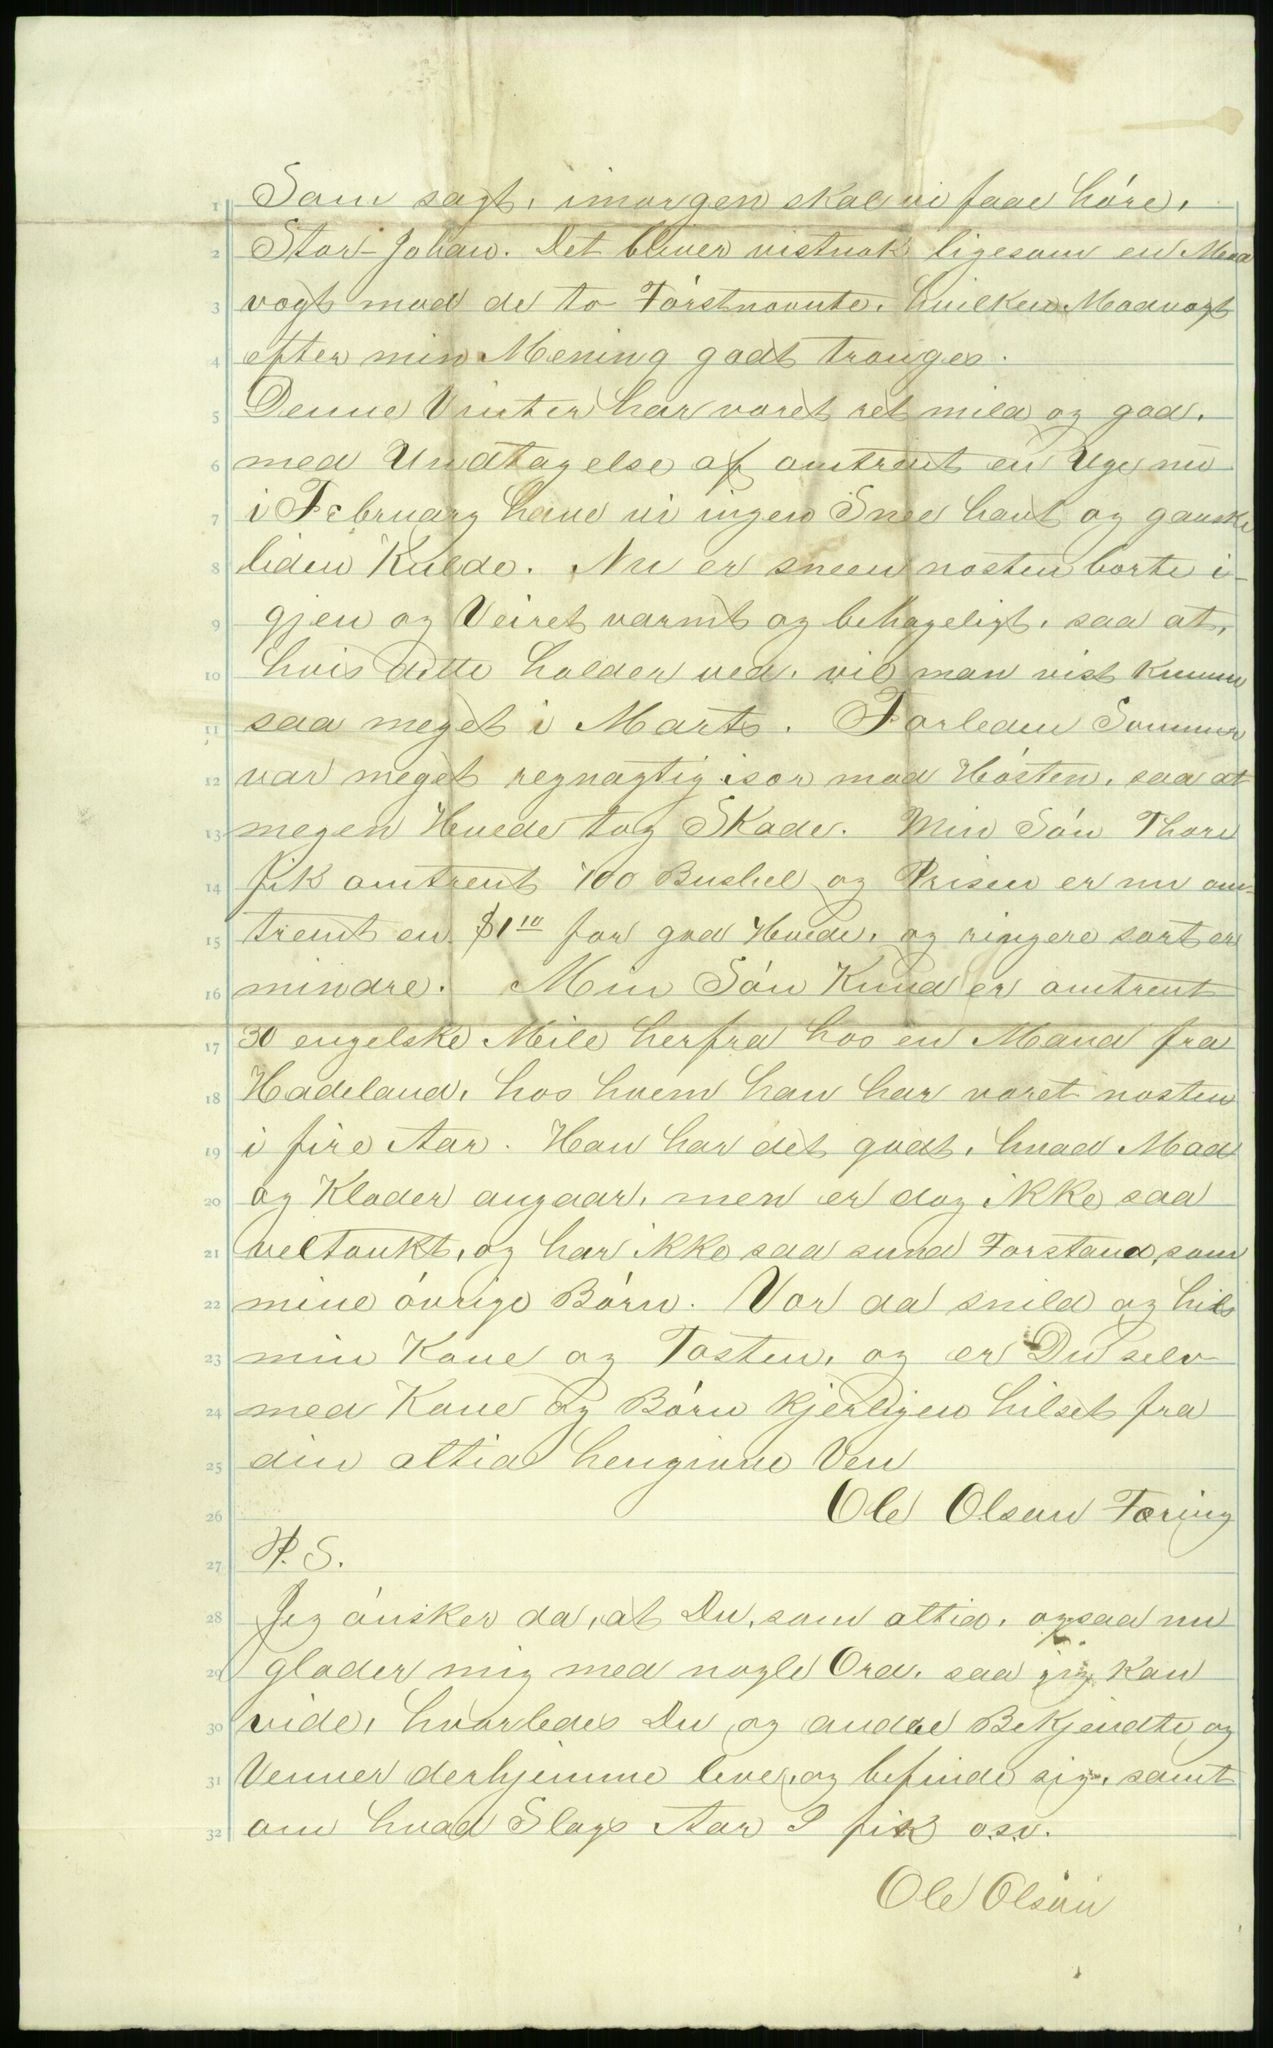 1 Som sagt, imorgen skal vi faae høre,
2 Stor-Johan. Det bliver vistnok ligesom en Mod
3 vogt mod de to Førstnevnte, hvilken Modvogt
4 efter min Mening godt trænges.
5 Denne Vinter har været ret mild og god,
6 med Undtagelse af omtrent en Uge nu
7 i February have vi ingen Snee havt og ganske
8 liden Kulde. Nu er sneen næsten borte i-
9 gjen og Veiret varmt og behageligt, saa at,
10 hvis dette holder ved, vil man vist kunne
11 saa meget i Marts. Forleden Sommer
12 var meget regnagtig især mod Høsten, saa at
13 megen Hvede tog Skade. Min Søn Thore
14 fik omtrent 100 Bushel og Prisen er nu om-
15 trent en $1 10 for god Hvede, og ringere sort er
16 mindre. Min Søn Knud er omtrent
17 30 engelske Mile herfra hos en Mand fra
18 Hadeland, hos hvem han har været næsten
19 i fire Aar. Han har det godt, hvad Mad
20 og Klæder angaar, men er dog ikke saa
21 veltænkt, og har ikke saa sund Forstand, som
22 mine øvrige Børn. Vær da snild og hils
23 min Kone og Tosten, og er Du selv
24 med Kone og Børn kjerligen hilset fra
25 din altid hengivne Ven
26 Ole Olsen Tæring
27 P. S.
28 Jeg ønsker da, at Du, som altid, ogsaa nu
29 glæder mig med nogle Ord, saa jeg kan
30 vide, hvorledes Du og andre Bekjendte og
31 Venner derhjemme leve, og befinde sig, samt
32 om hvad Slags Aar I fik o.s.v.
Ole Olsen